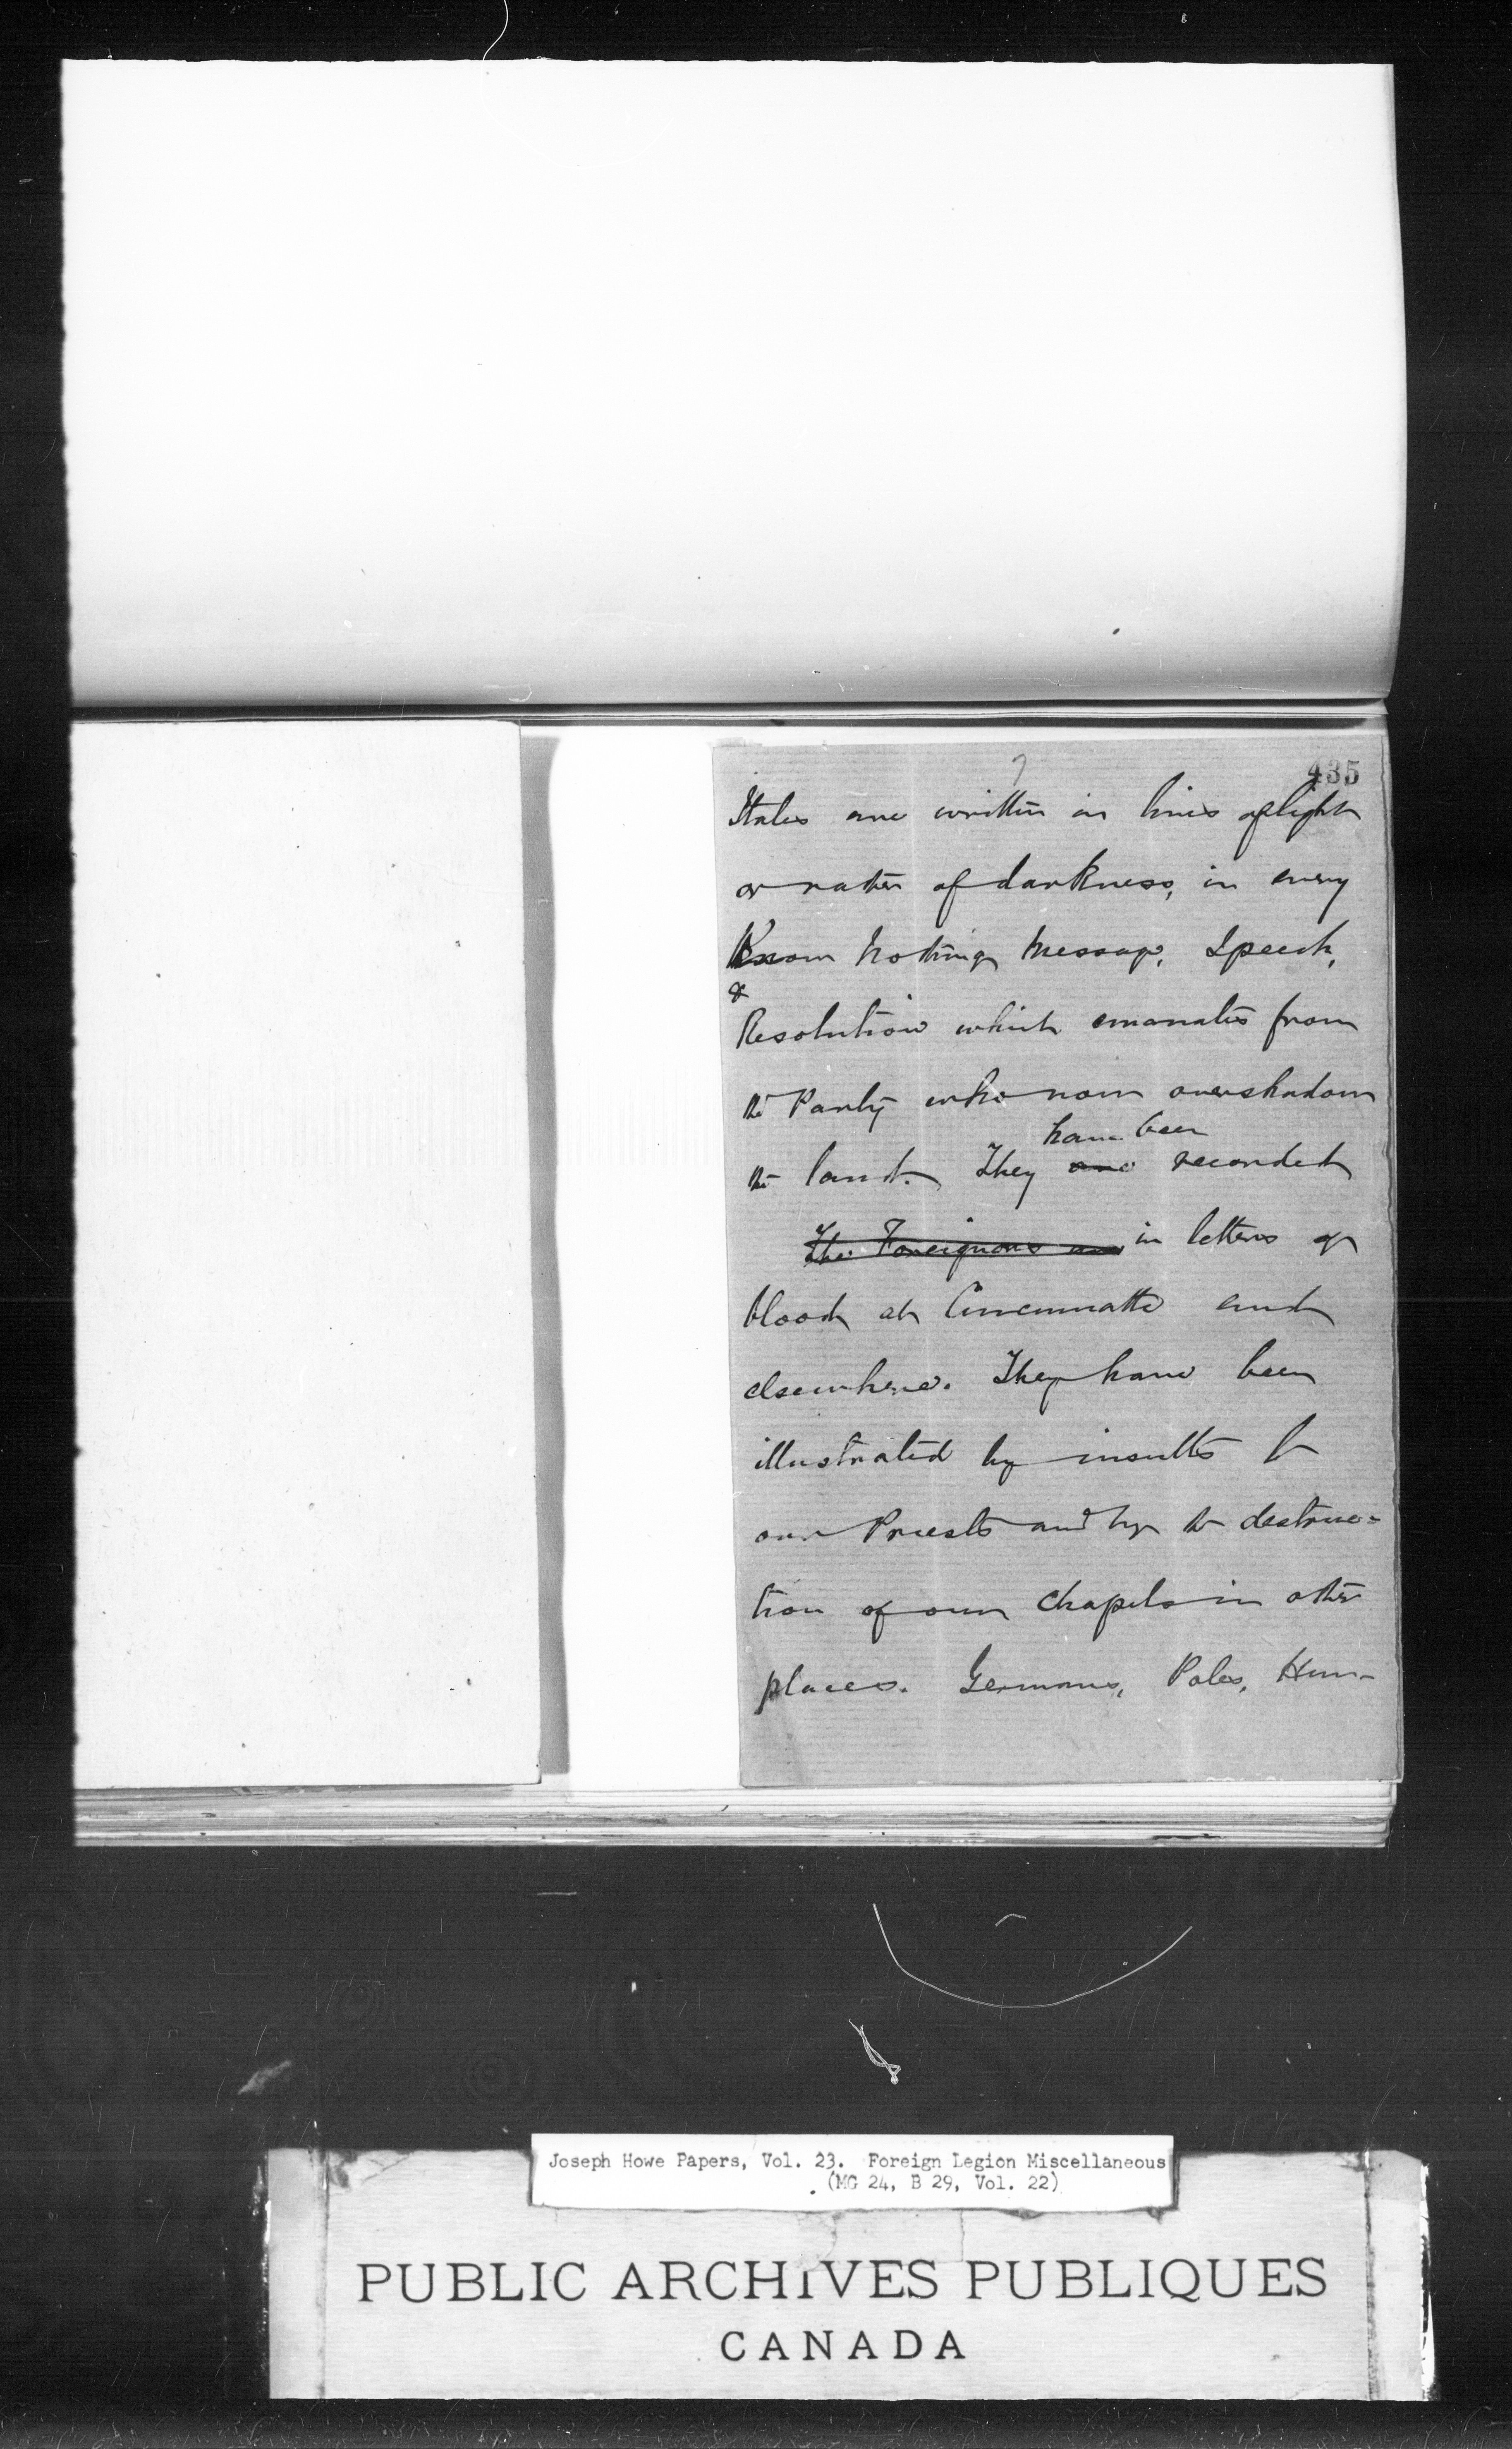 7
435
States are written in lines of light
or rather of darkness, in every
Know Nothing Message, Speech,
&
Resolution which emanates from
the Party who now overshadow
the land. They are have been recorded
The Foreigners are in letters of
blood at Cincinnatti and
elsewhere. They have been
illustrated by insults to
our Priests and by the destruc=
tion of our Chapels in other
places. Germans, Poles, Hun-
Joseph Howe Papers, Vol. 23. Foreign Legion Miscellaneous
(MG 24, B 29, Vol. 22)
PUBLIC ARCHIVES PUBLIQUES
CANADA